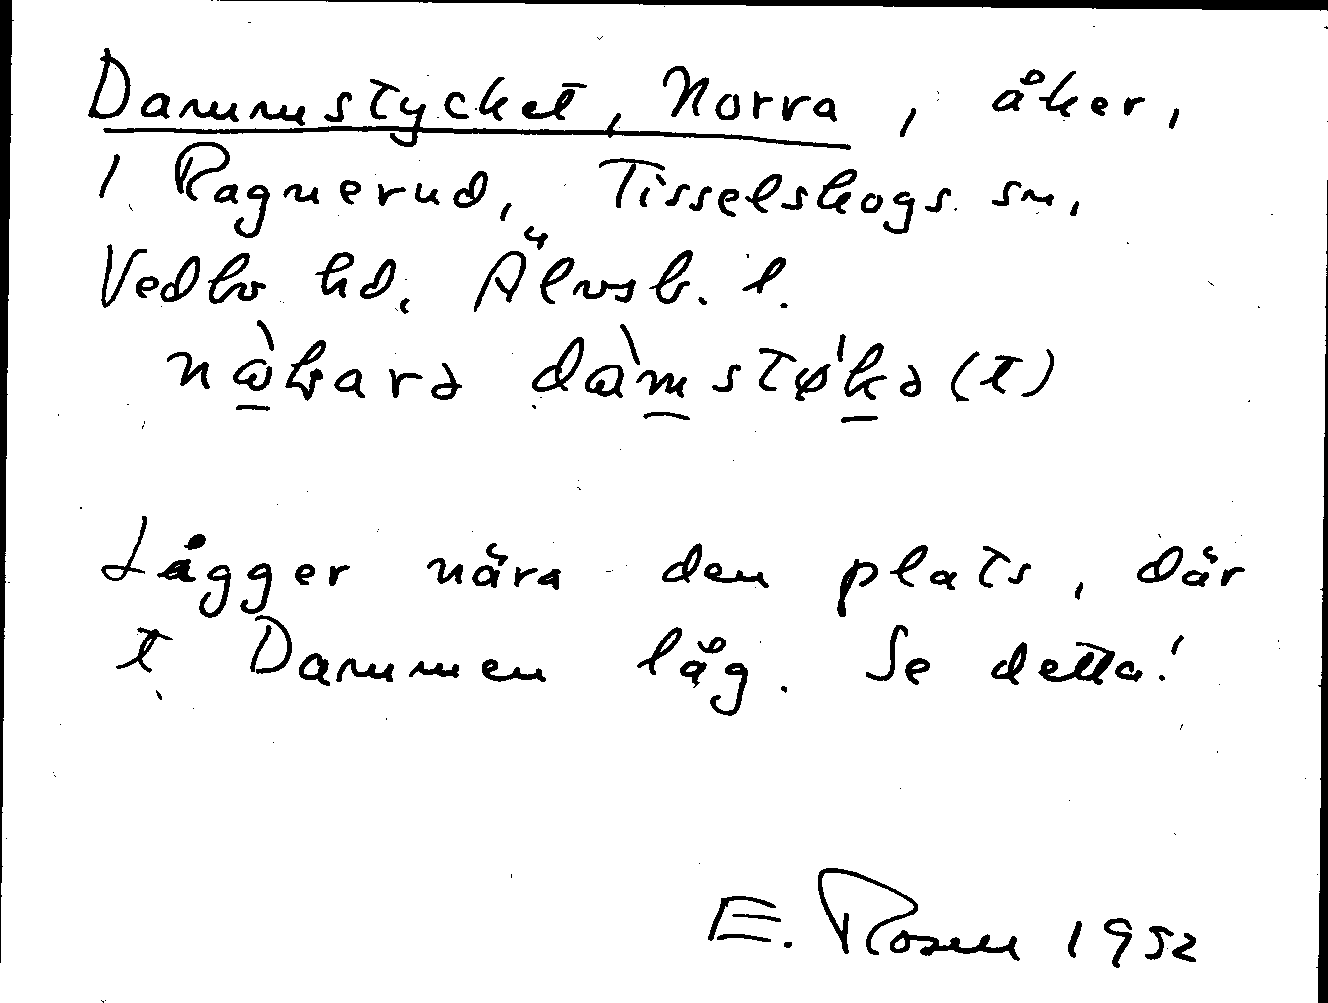 Dammstycket, Norra, åker,
1 Ragnerud, Tisselskogs sn,
Vedbo hd. Älvsb. l.
Lägger nära den plats, där
t Dammen låg. Se detta!
E. Rosell 1952